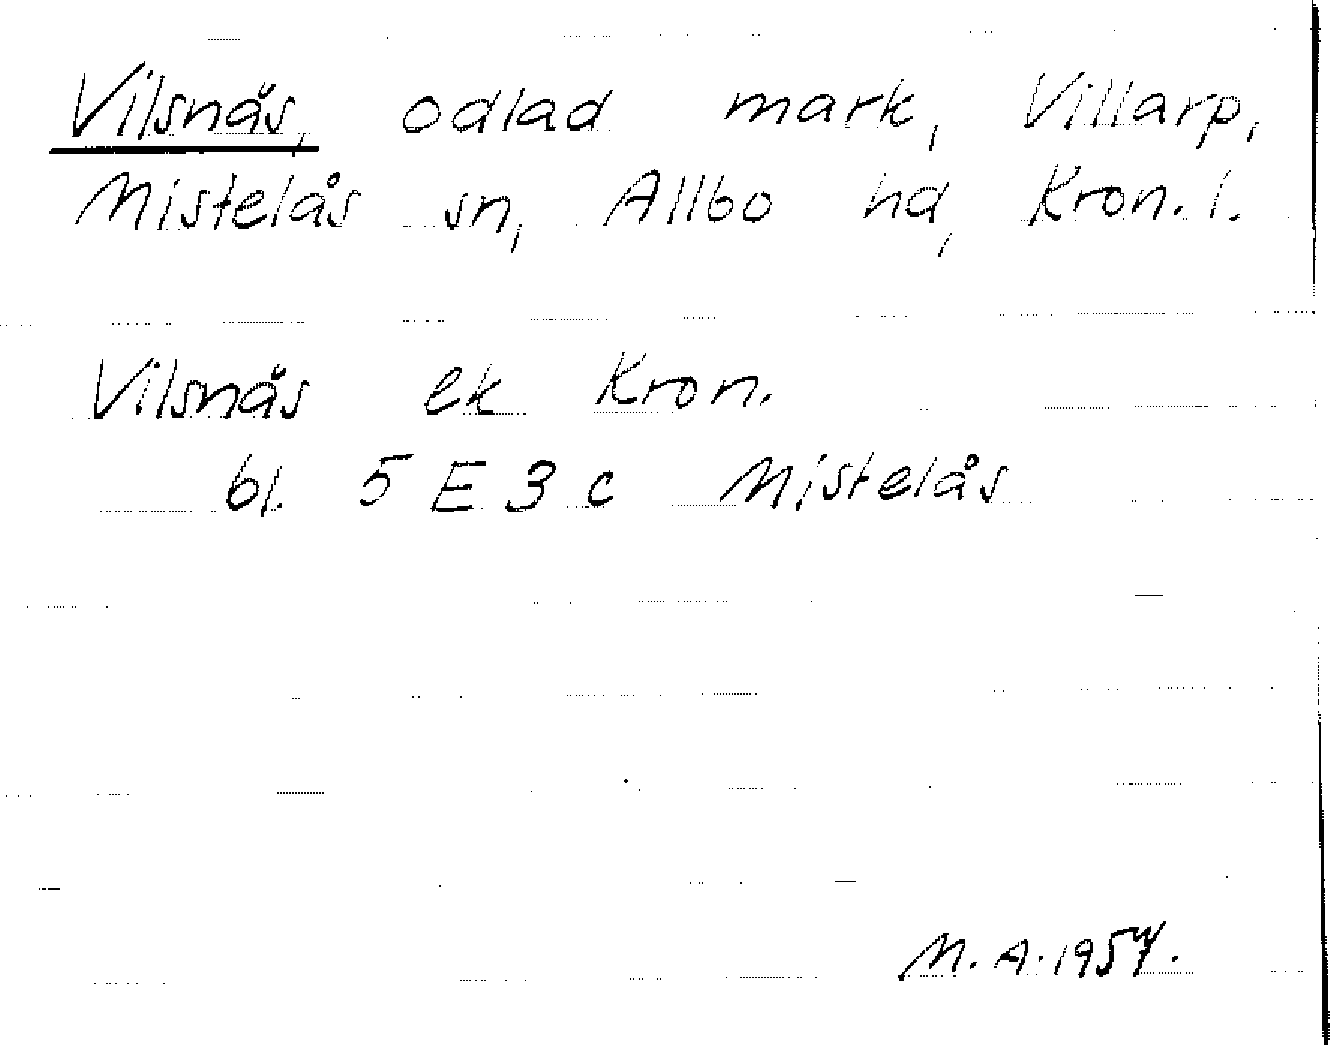 Vilsnäs, odlad mark, Villarp,
Mistelås sn, Allbo hd, Kron. l.
Vilsnäs ek Kron.
bl. 5 E 3 c Mistelås
M. A. 1957.